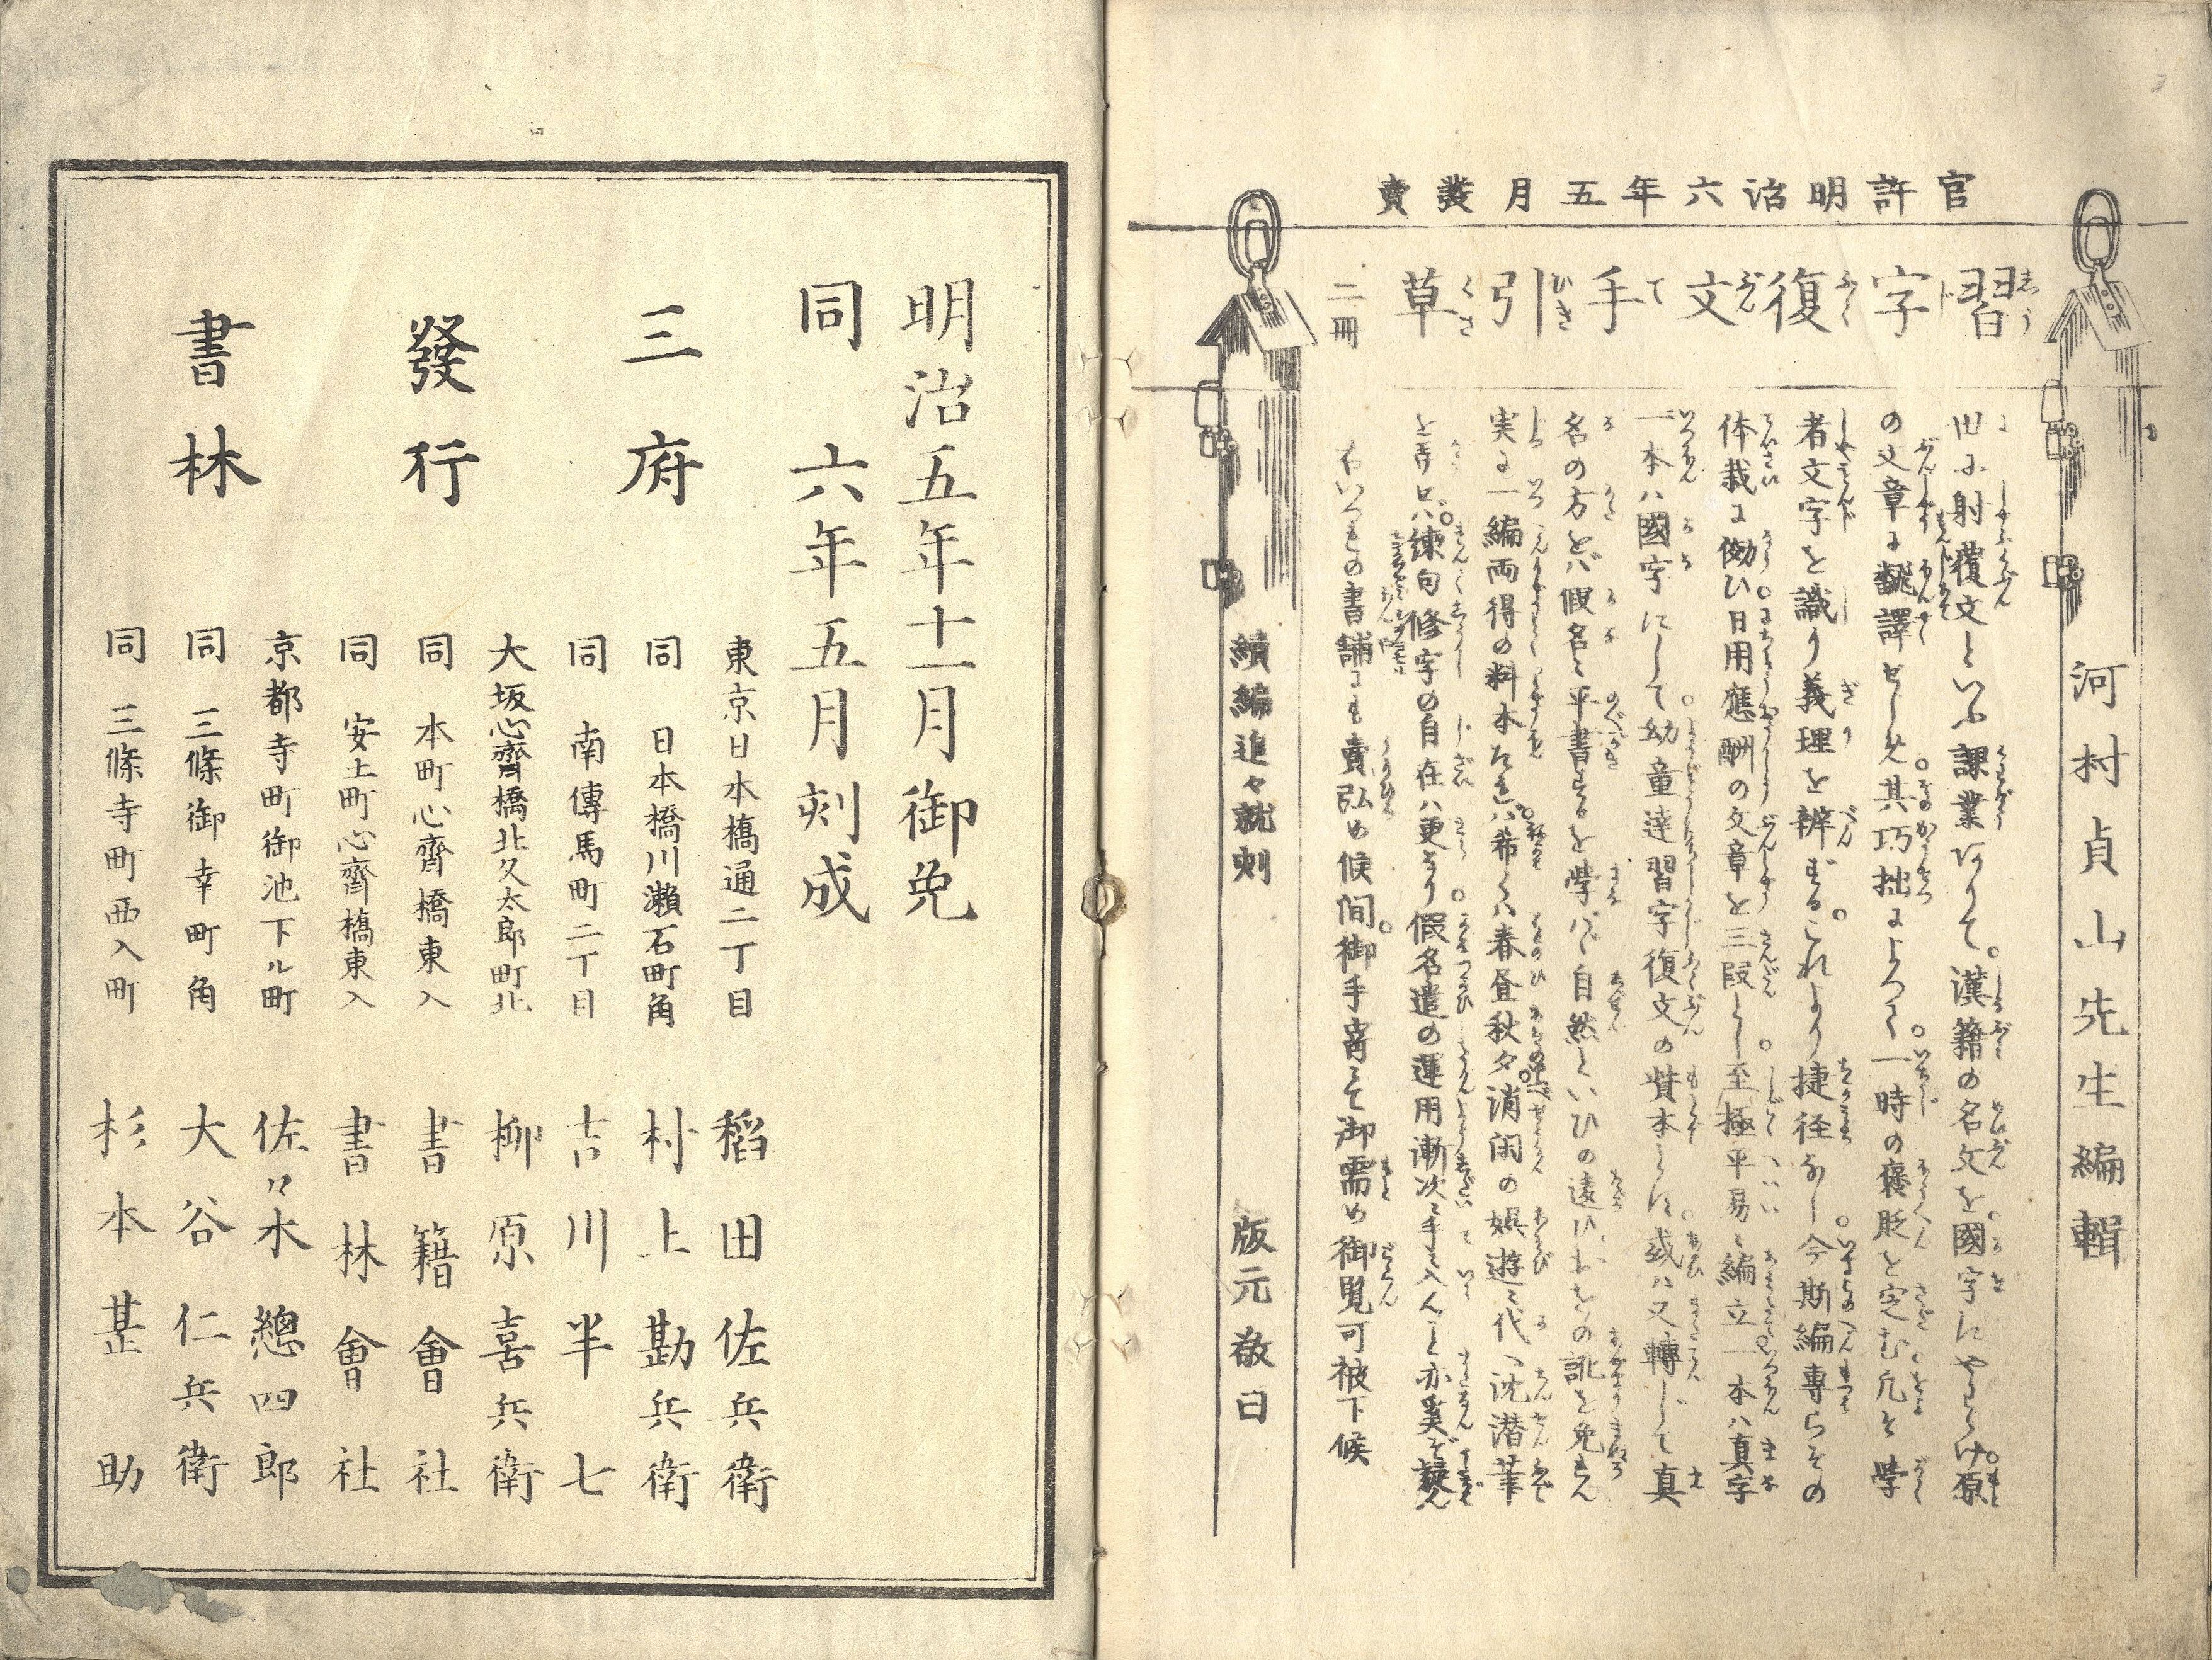 官許明治六年五月發賣
河村貞山先生編輯
習字復文手引草 二冊
世に射覆文といふ課業ありて。漢籍の名文を國字にやはらげ。原
の文章に飜譯せしめ其巧拙によつて。一時の褒貶を定む凡そ學
者文字を識り義理を辨ずる。これより捷径なし。今斯編専らその
体裁に傚ひ。日用應酬の文章を三段とし。至極平易に編立一本ハ真字
一本ハ國字にして。幼童達習字復文の貲本とし。或ハ又轉じて真
名の方をバ假名に平書するを學バヾ自然といひの遠ひの訛を免れん
実に一編両得の料本なれバ。希くハ春昼秋夕。消閑の娯遊に代へ沈潜筆
を弄さバ。練句修字の自在ハ更なり。假名遣の運用漸次に手に入ん
右いづれの書舗にも賣弘め候間。御手寄にて御需め御覧可被下候
續編進々就刻
版元敬白
明治五年十一月御免
同 六年五月刻成
三府
發行
書林
東京日本橋通二丁目 稻田佐兵衛
同 日本橋川瀬石町角 村上勘兵衛
同 南傳馬町二丁目 吉川半七
大坂心齊橋北久太郎町北 柳原喜兵衛
同 本町心齊橋東入 書籍會社
同 安土町心齊橋東入 書林會社
京都寺町御池下ル町 佐々木總四郎
同 三條御幸町角 大谷仁兵衛
同 三條寺町西入町 杉本甚助